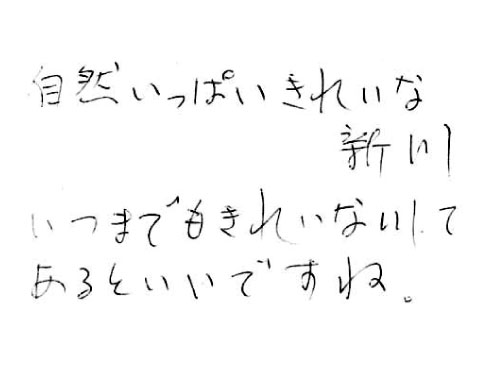 自然いっぱいきれいな
新川
いつまでもきれいな川で
あるといいですね。